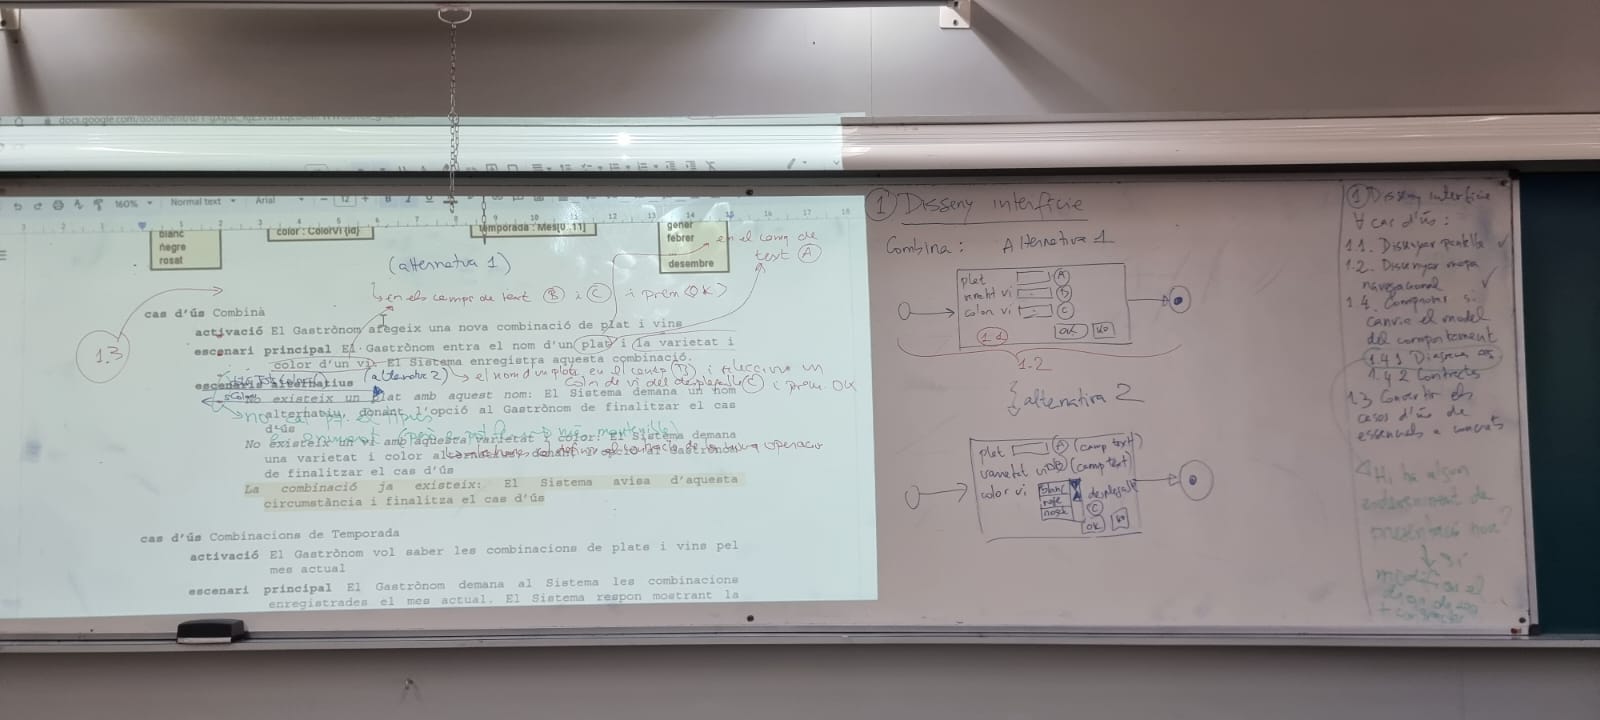 docs.google.com/document/d/
160%
Normal text
Arial
12
B I U
3 2 1 1 2 3 4 5 6 7 8 9 10 11 12 13 14 15 16 17 18
blanc
negre
rosat
color : ColorVi {id}
temporada : Mes[0..11]
gener
febrer
...
desembre
en el camp de
text A
(alternativa 1)
en els camps de text B i C i prem (OK)
1.3
cas d'ús Combina
activació El Gastrònom afegeix una nova combinació de plat i vins
escenari principal El Gastrònom entra el nom d'un plat i la varietat i
color d'un vi. El Sistema enregistra aquesta combinació.
(alternativa 2) el nom d'un plat en el camp B i selecciona un
color de vi del desplegable C i prem OK
escenaris alternatius
No existeix un plat amb aquest nom: El Sistema demana un nom
alternatiu, donant l'opció al Gastrònom de finalitzar el cas
d'ús
no cal
No existeix un vi amb aquesta varietat i color: El Sistema demana
una varietat i color
operació
de finalitzar el cas d'ús
La combinació ja existeix: El Sistema avisa d'aquesta
circumstància i finalitza el cas d'ús
cas d'ús Combinacions de Temporada
activació El Gastrònom vol saber les combinacions de plats i vins pel
mes actual
escenari principal El Gastrònom demana al Sistema les combinacions
enregistrades el mes actual. El Sistema respon mostrant la
1 Disseny interfície
Combina: Alternativa 1
plat A
varietat vi B
color vi C
1.1 OK KO
1.2
alternativa 2
plat A (camp text)
varietat vi B (camp text)
color vi blanc desplegable
C
OK KO
1) Disseny interfície
∀ cas d'ús:
1.1. Dissenyar pantalla ✓
1.2. Dissenyar mapa
navegacional ✓
1.4. Comprovar si
canvia el model
del comportament
1.4.1 Diagrama
1.4.2 Contractes
1.3 Convertir els
casos d'ús de
essencials a concrets
Hi ha algun
esdeveniment de
presentació nou?
Sí